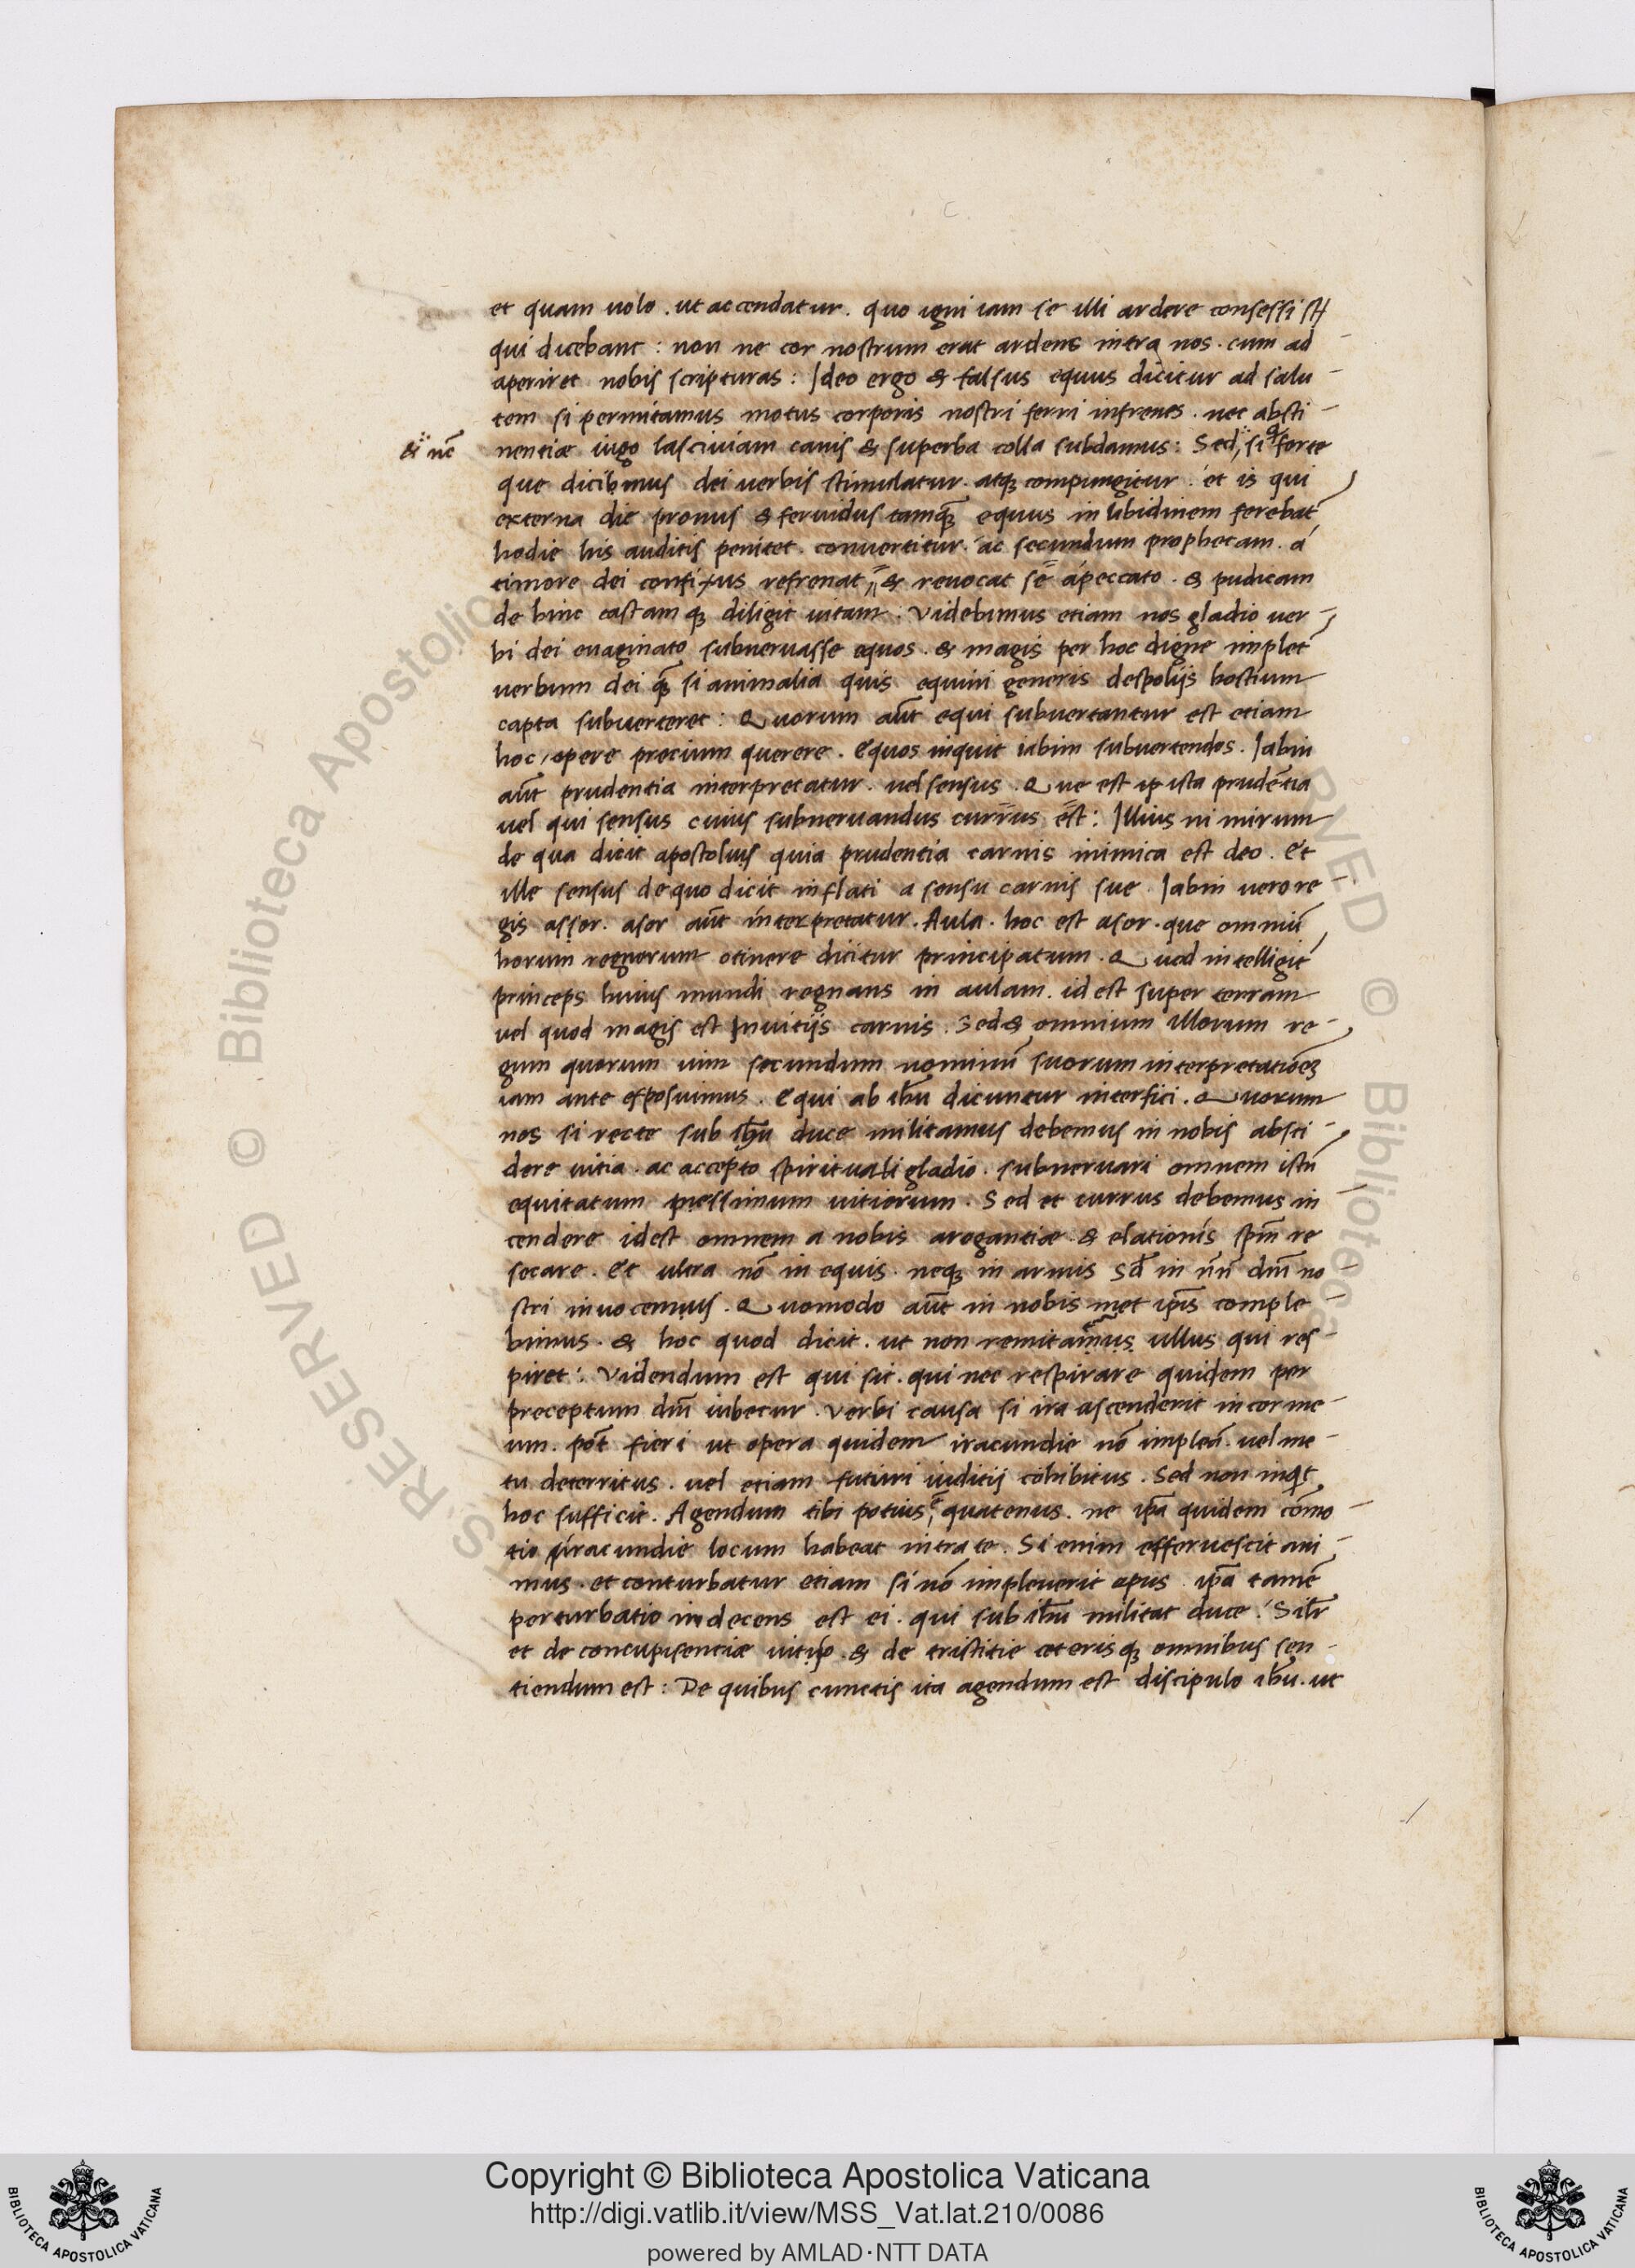 et quam uolo . ut accendatur . quo igni iam se illi ardere confessi st
qui dicebant : non ne cor nostrum erat ardens intra nos . cum ad
aperiret nobis scripturas : Ideo ergo & falsus equus dicitur ad salu-
tem si permitamus motus corporis nostri ferri infrenes . nec absti-
& nc̄
nentiæ iugo lasciuiam carnis & superba colla subdamus : Sed si forte
que dicibmus dei uerbis stimulatur . atqꝫ compungitur . et is qui
externa die pronus & feruidus tamqꝫ equus in libidinem ferebat̄
hodie his auditis penitet . conuertitur . ac secundum prophetam . á
timore dei confixus refrenat & reuocat se ápeccato . & pudicam
de hinc castam qꝫ diligit uitam : Videbimus etiam nos gladio uer-
bi dei euaginato subneruasse equos . & magis per hoc digne implet̄
uerbum dei qꝫ si animalia quis equini generis despolijs hostium
capta subuerteret : Quorum aūt equi subuertantur est etiam
hoc opere precium querere . Equos inquit iabim subuertendos . Iabin
aūt prudentia interpretatur . uel sensus . Que est ista prudētia
uel qui sensus cuius subneruandus currus est : Illius ni mirum
de qua dicit apostolus quia prudentia carnis inimica est deo . Et
ille sensus de quo dicit inflati a sensu carnis sue . Iabin uero re-
gis assor . asor aūt interpretatur . Aula . hoc est asor . que omniū
horum regnorum otinere dicitur principatum . Quod intelligit̄
princeps huius mundi regnans in aulam . id est super terram
uel quod magis est Inuitijs carnis . Sed & omnium illorum re-
gum quorum uim secundum nominū suorum interpretatiōeꝫ
iam ante exposuimus . Equi ab ihū dicuntur interfici . Quorum
nos si recte sub ihū duce militamus debemus in nobis absci-
dere uitia . ac accepto spirituali gladio . subneruari omnem istū
equitatum pessimum uitiorum . Sed et currus debemus in
cendere idest omnem a nobis arogantiæ & elationis spm̄ re
secare . Et ultra nō in equis . neqꝫ in armis sꝫ in nn̄ dm̄ no-
stri inuocemus . Quomodo aūt in nobis met ipīs comple-
bimus . & hoc quod dicit . ut non remitamus ullus qui res-
piret : Videndum est qui sit . qui nec respirare quidem per
preceptum dm̄ iubetur . Verbi causa si ira ascenderit in cor me-
um . pōt fieri ut opera quidem iracundie nō impleā . uel me-
tu deterritus . uel etiam futuri iuditij cohibitus . Sed non inqt
hoc sufficit . Agendum tibi potius ē quatenus . ne ip̄a quidem cōmo-
tio iracundie locum habeat intra te . Si enim efferuescit ani-
mus . et conturbatur etiam si nō impleuerit opus . ip̄a tamē
perturbatio indecens est ei . qui sub ihū militat duce . Silr̄
et de concupisentiæ uitio . & de tristitie ceterisqꝫ omnibus sen-
tiendum est : De quibus cunctis ita agendum est discipulo ihū . ut
© Biblioteca Apostolica
RESERVED
RVED © Biblioteca
Copyright © Biblioteca Apostolica Vaticana
http://digi.vatlib.it/view/MSS_Vat.lat.210/0086
powered by AMLAD·NTT DATA
BIBLIOTECA APOSTOLICA VATICANA
BIBLIOTECA APOSTOLICA VATICANA